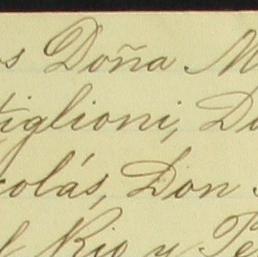 os Doña M
tiglioni, Do
colás, Don
l Rio y Te